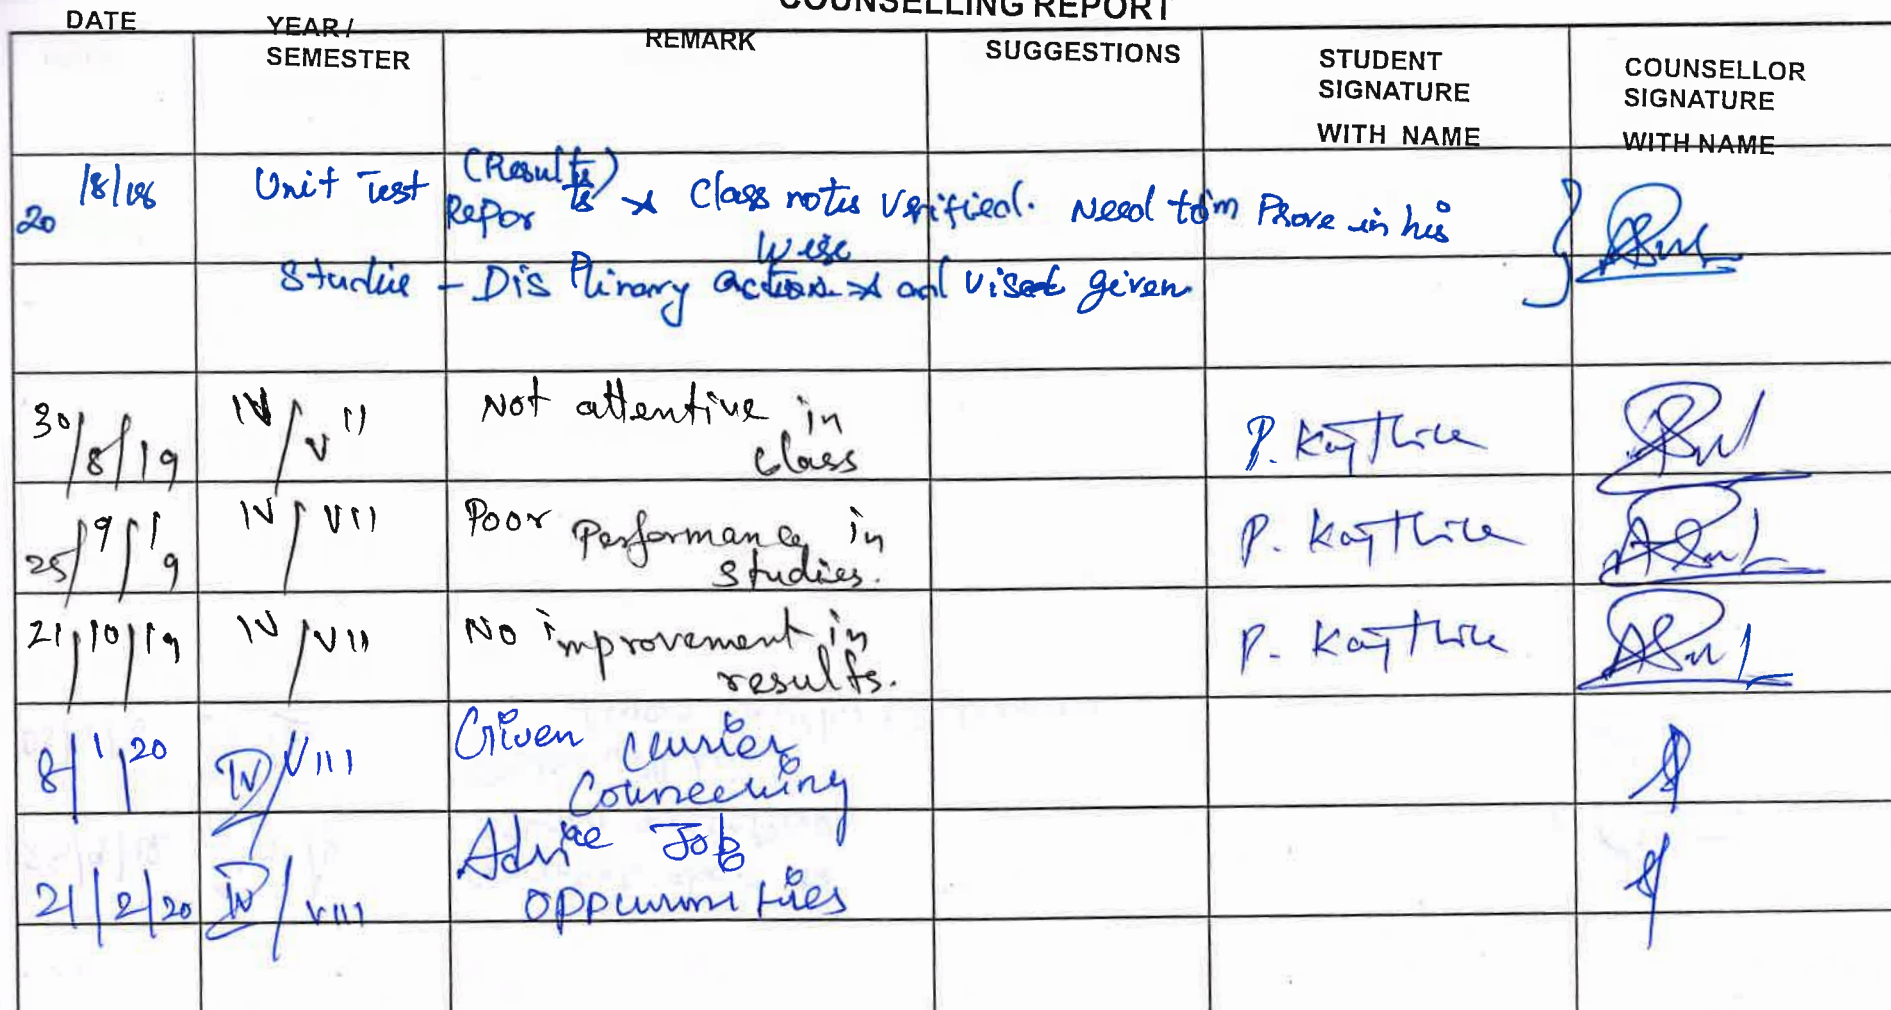 COUNSELLING REPORT
DATE YEAR / SEMESTER REMARK SUGGESTIONS STUDENT SIGNATURE WITH NAME COUNSELLOR SIGNATURE WITH NAME
20/8/18 Unit Test (Results) Repor ts * Class notes Verified. Need to im Prove in his
Studie - Dis Plinary action wise * ad vised given
30/8/19 IV/VII Not attentive in class P. Kaythick
25/9/19 IV/VII Poor Performance in studies. P. Kaythick
21/10/19 IV/VII No improvement in results. P. Kaythick
8/1/20 IV/VIII Given
21/2/20 IV/VIII Job